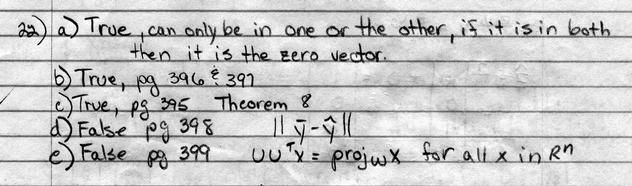 22) a) True, can only be in one or the other, if it is in both
then it is the zero vector.
b) True, pg 396 & 397
c) True, pg 395 Theorem 8
d) False pg 398 ||ȳ-ŷ||
e) False pg 399 UUᵀx = projwx for all x in Rⁿ